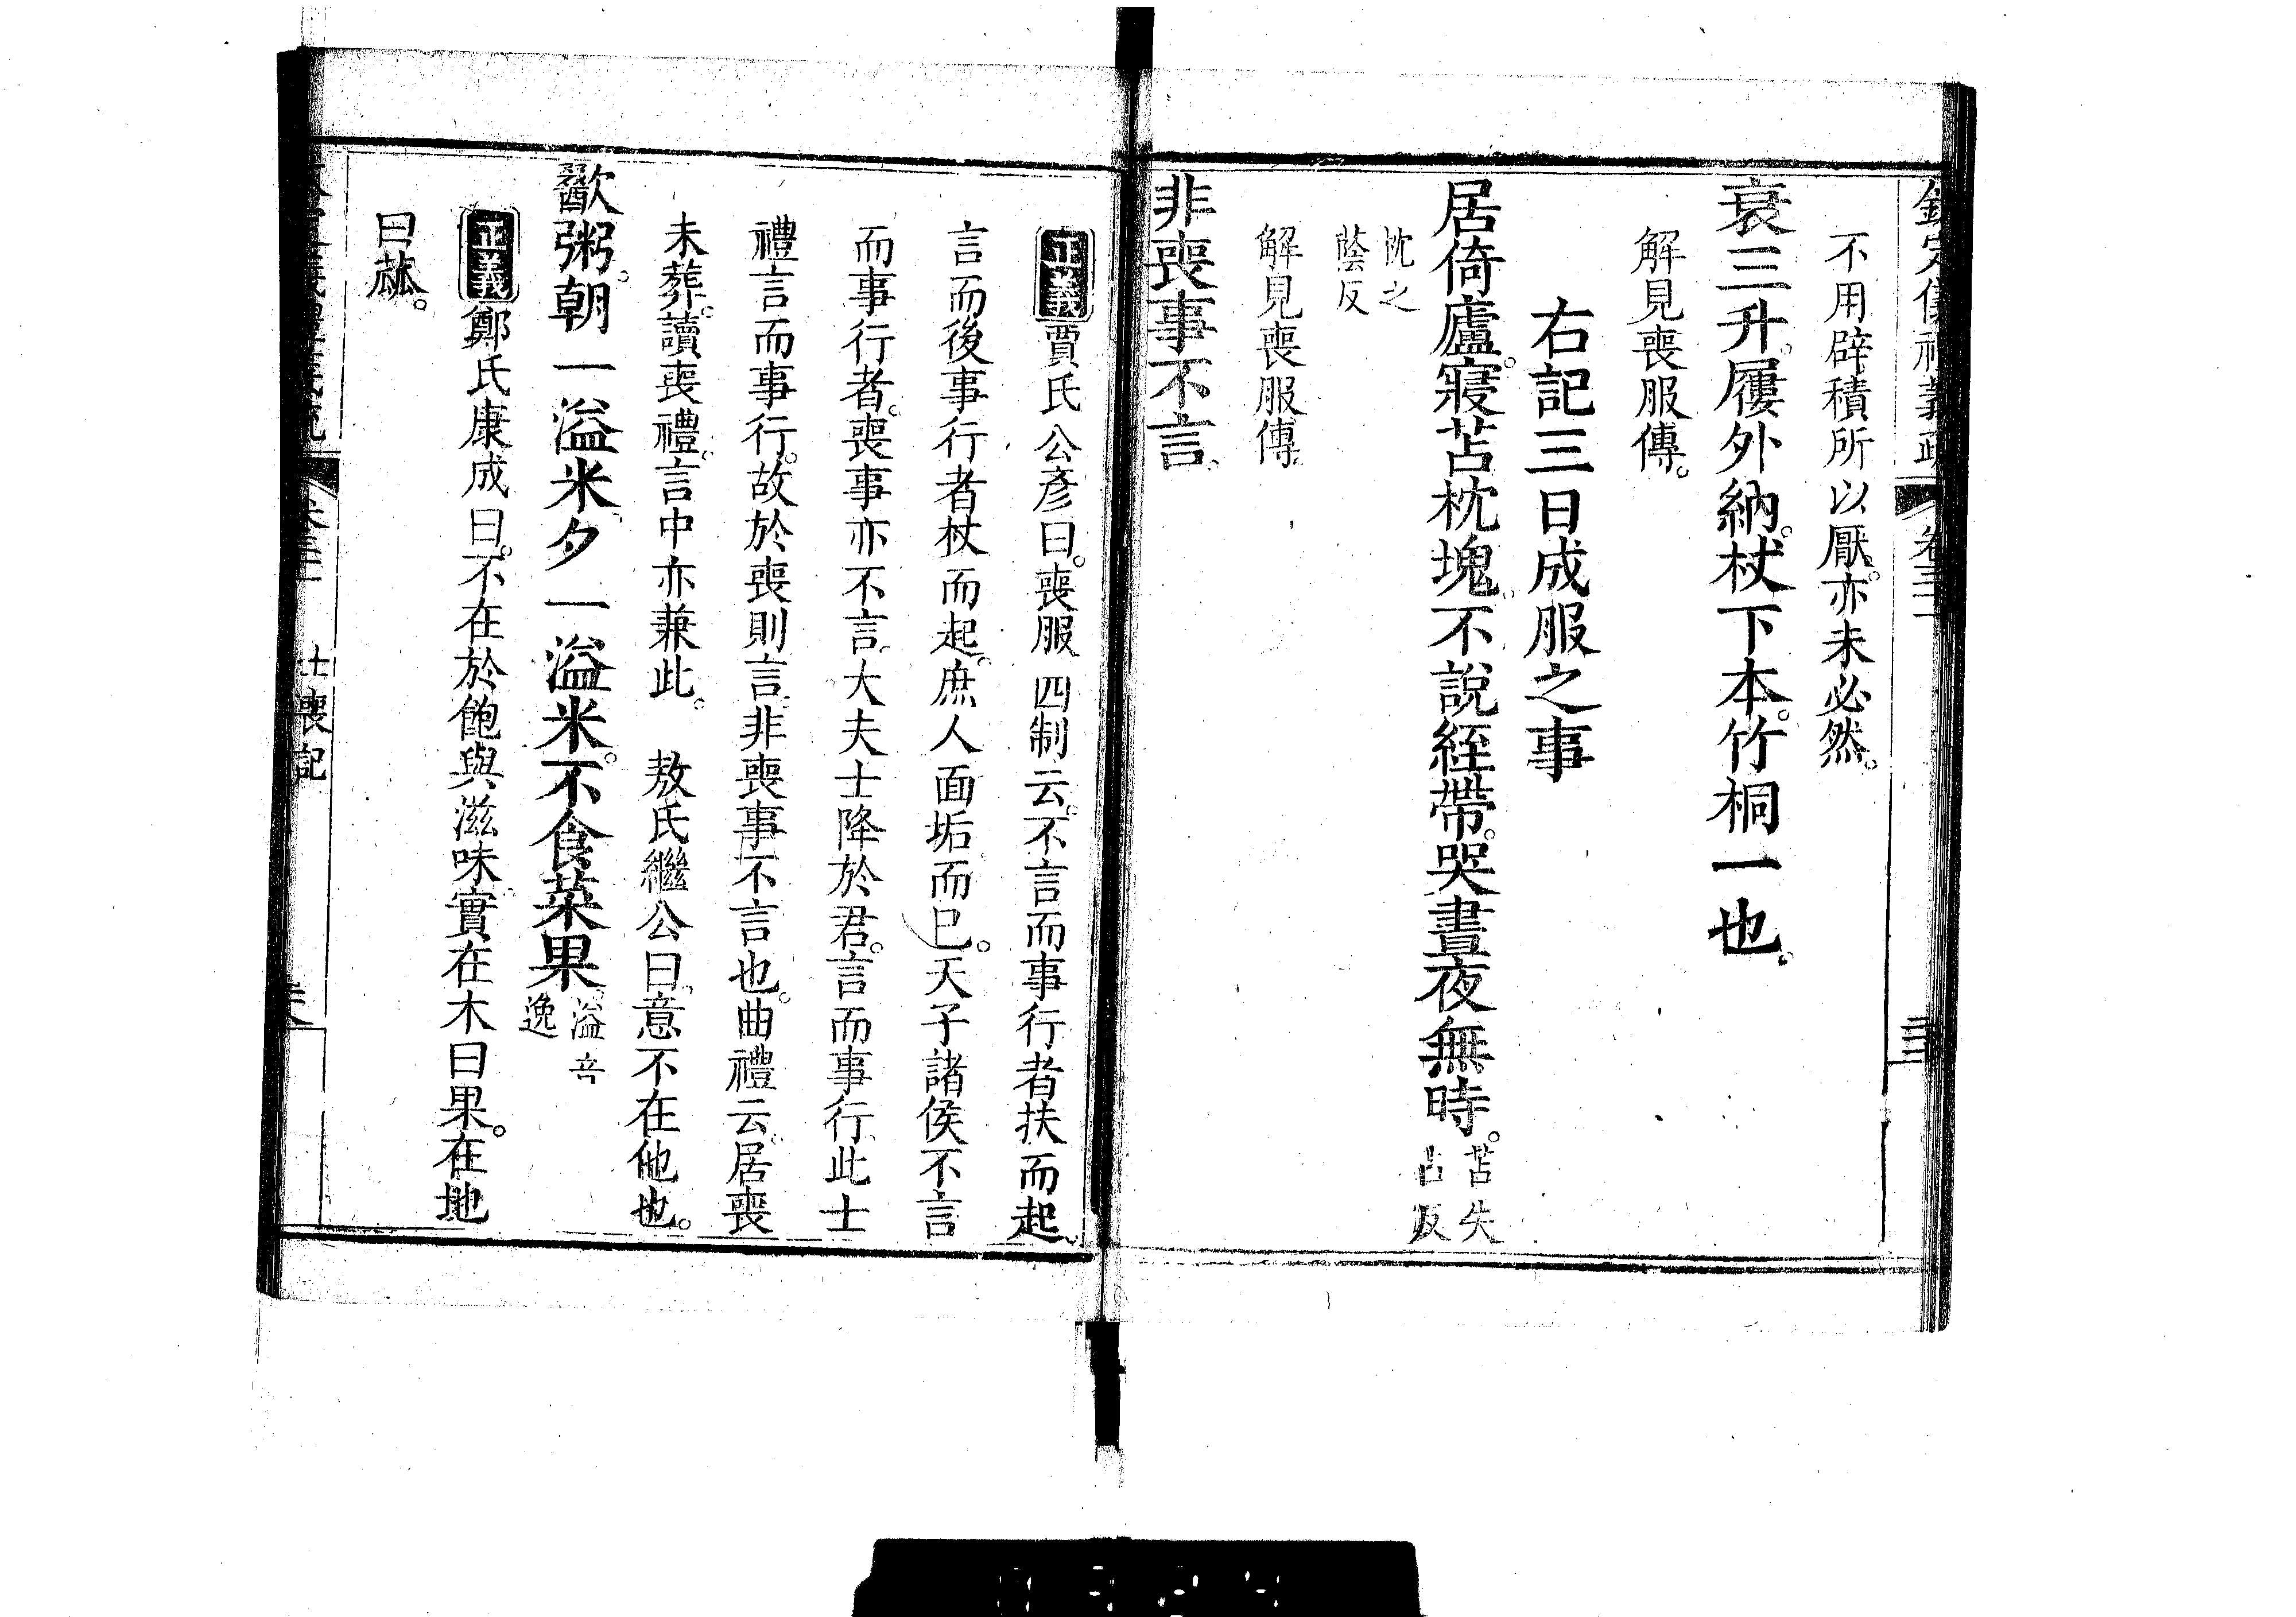 不用辟積所以厭亦未必然。
衰三升。屨外納。杖下本。竹桐一也。
解見喪服傳。
右記三日成服之事
居倚廬。寢苫枕塊。不說絰帶。哭晝夜無時。苫失占反
枕之蔭反
解見喪服傳。
非喪事不言。
正義賈氏公彥曰。喪服四制云。不言而事行者扶而起。
言而後事行者杖而起。庶人面垢而已。天子諸侯不言
而事行者。喪事亦不言。大夫士降於君。言而事行。此士
禮言而事行。故於喪則言。非喪事不言也。曲禮云。居喪
未葬。讀喪禮。言中亦兼此。 敖氏繼公曰。意不在他也。
歠粥。朝一溢米。夕一溢米。不食菜果。溢音逸
正義鄭氏康成曰。不在於飽與滋味。實在木曰果。在地
曰蓏。
士喪記